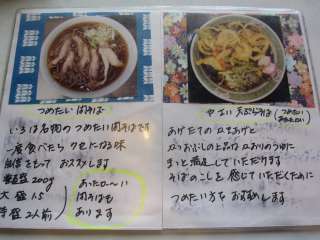 つめたい肉そば
いろは名物のつめたい肉そばです
一度食べたら クセになる味
自信をもって おススメします
普通盛 200g
大盛 1.5
特盛 2人前
あったか〜い
肉そばも
あります
やさい 天ぷらそば (つめたい
あたたかい)
あげたての
きっと満足して いただけます
そばのこしを 感じて いただくために
つめたい方を おすすめします